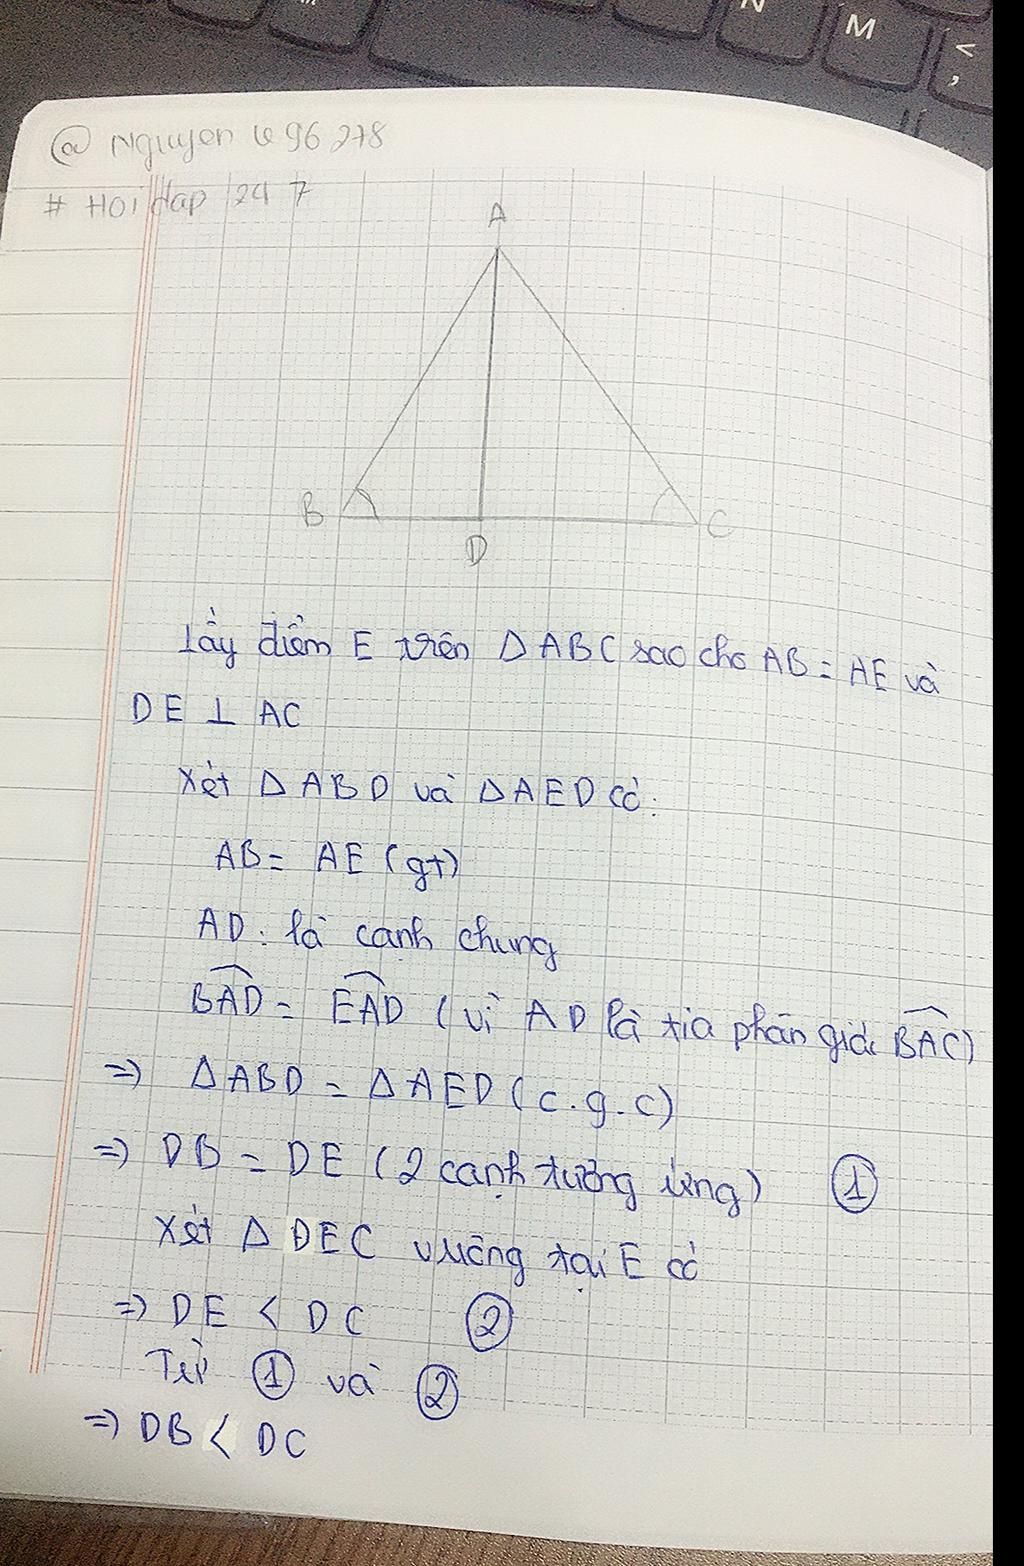 N
M
<
,
@ Nguyen le 96 278
# HOI dap 24 7
A
B
C
D
Lấy điểm E trên Δ ABC sao cho AB = AE và
DE ⊥ AC
Xét Δ ABD và Δ AED có:
AB = AE (gt)
AD: là cạnh chung
BAD = EAD (vì AD là tia phân giác BAC)
=> ΔABD = ΔAED (c.g.c)
=> DB = DE (2 cạnh tương ứng) ①
Xét Δ DEC vuông tại E có
=> DE < DC ②
Từ ① và ②
=> DB < DC